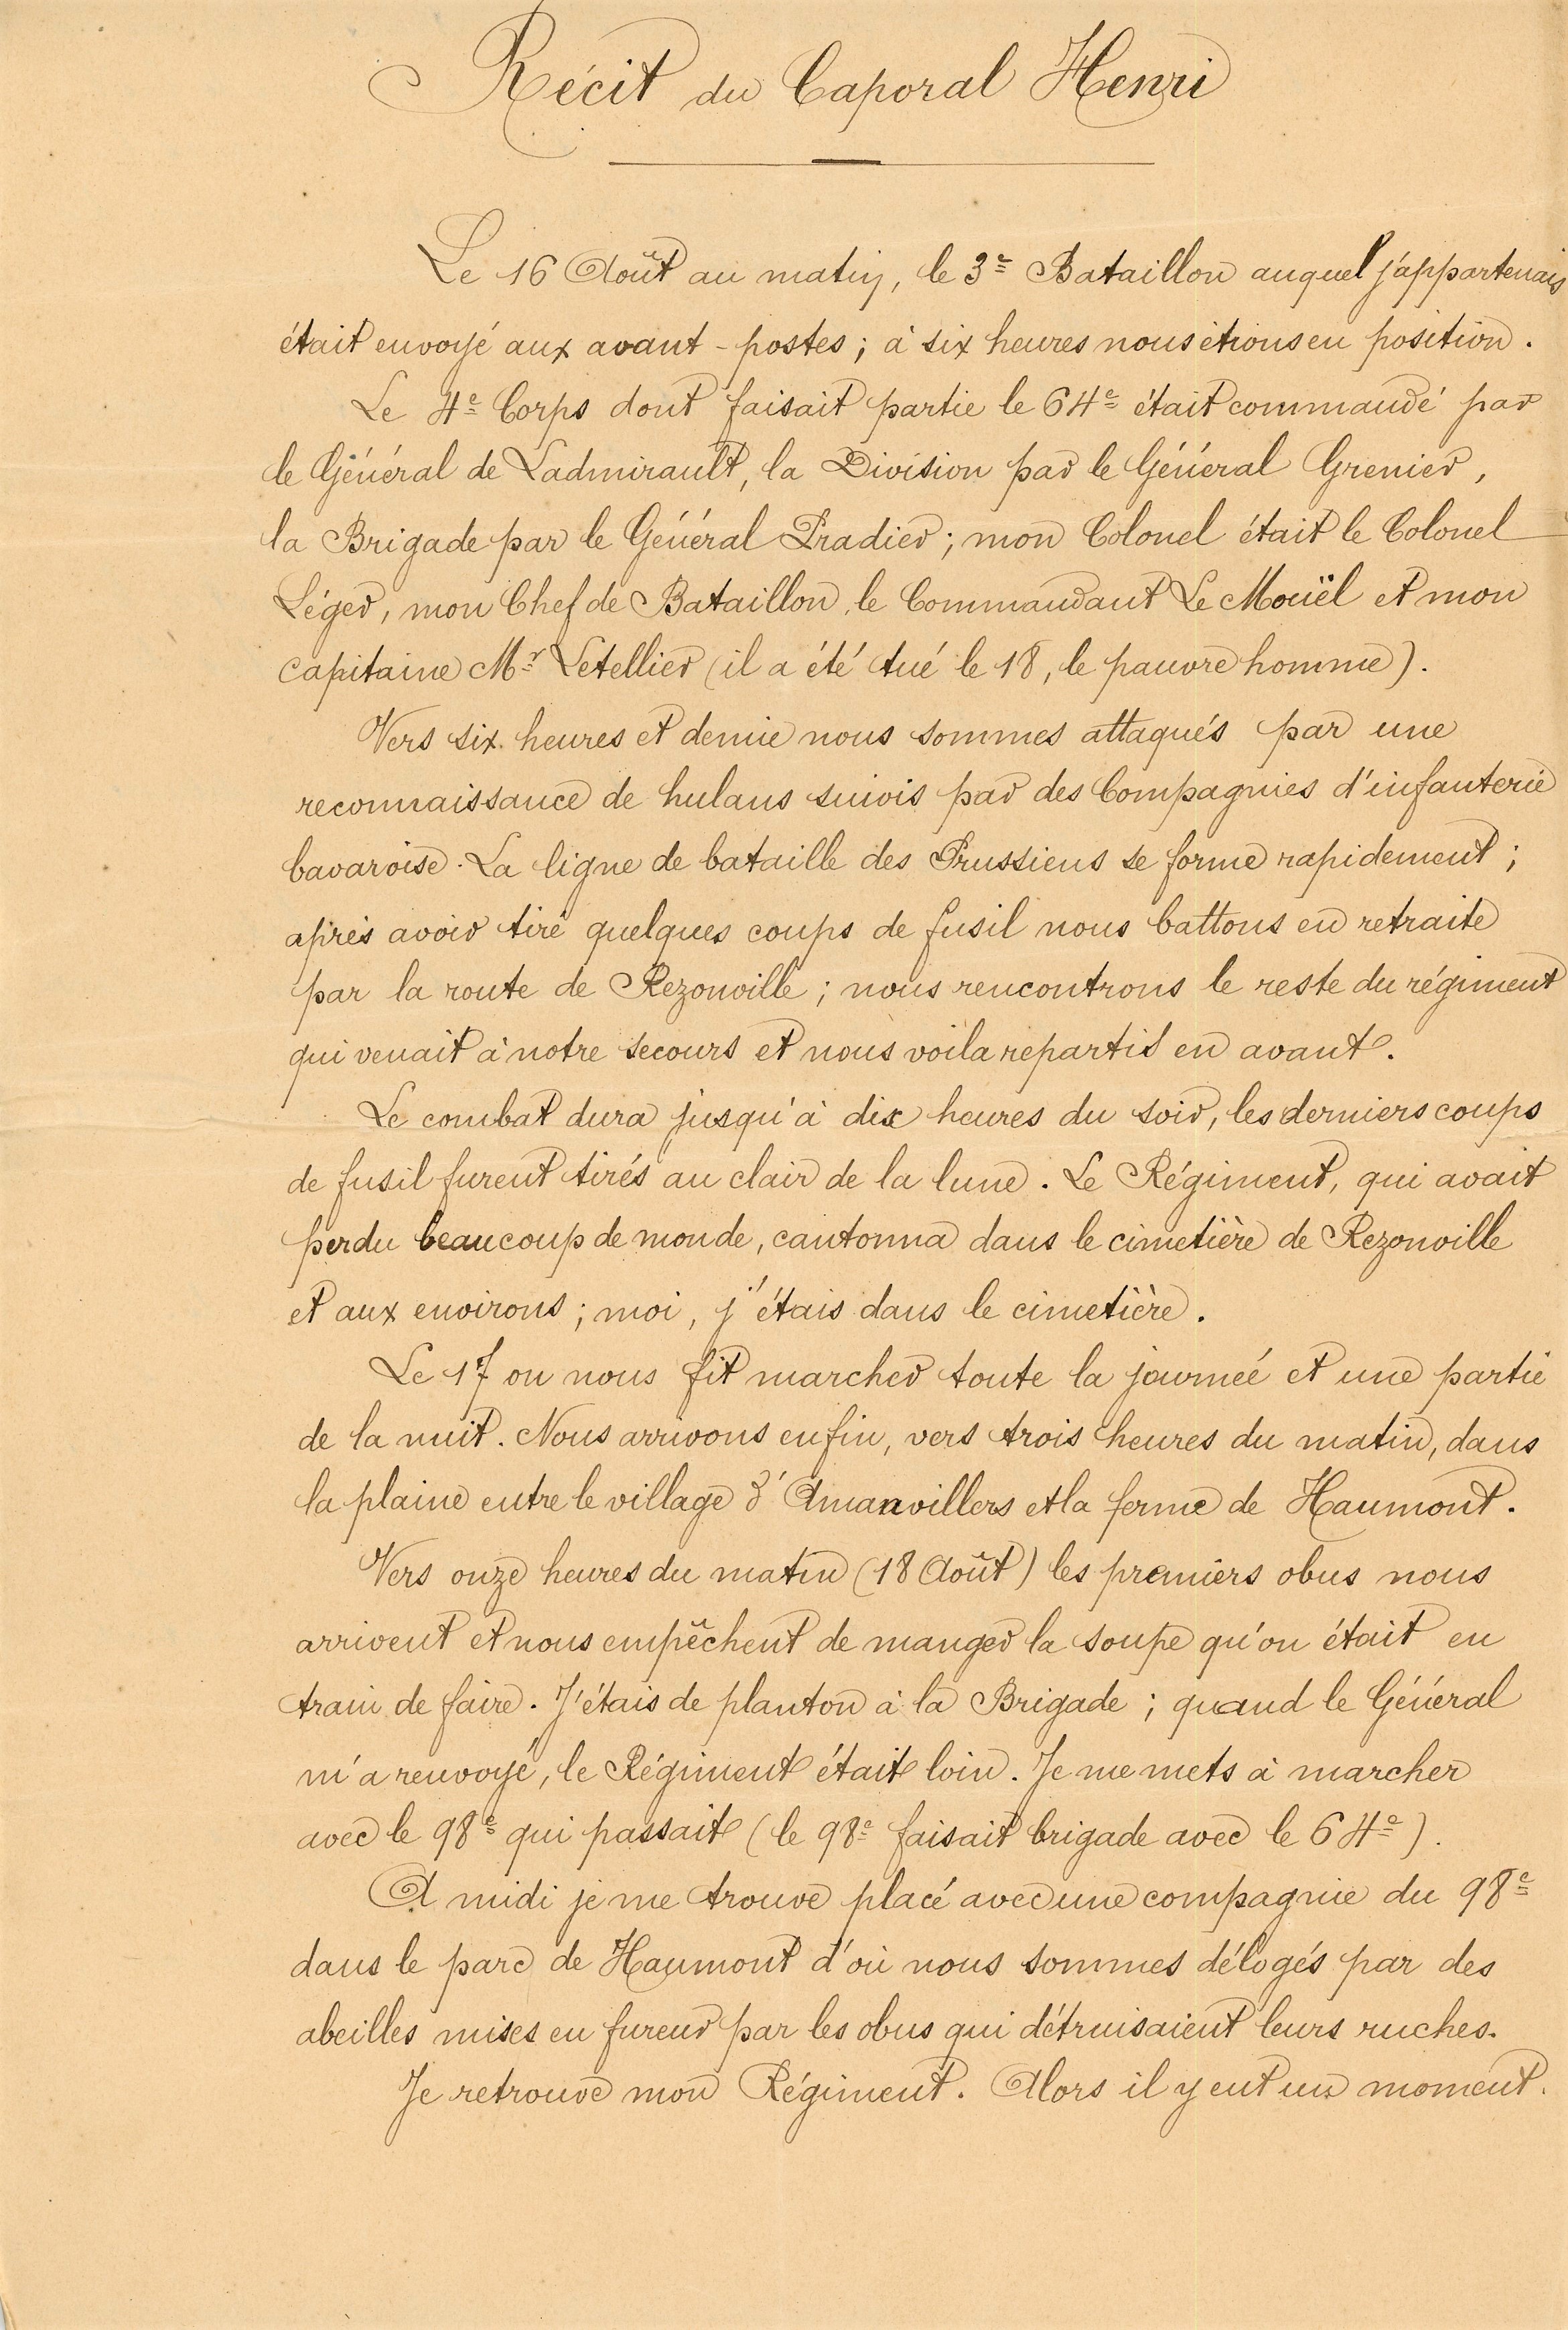 Récit du Caporal Henri
Le 16 Août au matin, le 3e Bataillon auquel j'appartenais
était envoyé aux avant-postes ; à six heures nous étions en position.
Le 4e Corps dont faisait partie le 64e était commandé par
le Général de Ladmirault, la Division par le Général Grenier,
la Brigade par le Général Pradier ; mon Colonel était le Colonel
Léger, mon Chef de Bataillon, le Commandant Le Mouël et mon
capitaine Mr Letellier (il a été tué le 18, le pauvre homme).
Vers six heures et demie nous sommes attaqués par une
reconnaissance de hulans suivis par des Compagnies d'infanterie
bavaroise. La ligne de bataille des Prussiens se forme rapidement ;
après avoir tiré quelques coups de fusil nous battons en retraite
par la route de Rezonville ; nous rencontrons le reste du régiment
qui venait à notre secours et nous voila repartis en avant.
Le combat dura jusqu'à dix heures du soir, les derniers coups
de fusil furent tirés au clair de la lune. Le Régiment, qui avait
perdu beaucoup de monde, cantonna dans le cimetière de Rezonville
et aux environs ; moi, j'étais dans le cimetière.
Le 17 on nous fit marcher toute la journeé et une partie
de la nuit. Nous arrivons enfin, vers trois heures du matin, dans
la plaine entre le village d'Amanvillers et la ferme de Haumont.
Vers onze heures du matin (18 Août) les premiers obus nous
arrivent et nous empêchent de manger la soupe qu'on était en
train de faire. J'étais de planton à la Brigade ; quand le Général
m'a renvoyé, le Régiment était loin. Je me mets à marcher
avec le 98e qui passait (le 98e faisait brigade avec le 64e).
A midi je me trouve placé avec une compagnie du 98e
dans le parc de Haumont d'où nous sommes délogés par des
abeilles mises en fureur par les obus qui détruisaient leurs ruches.
Je retrouve mon Régiment. Alors il y eut un moment.